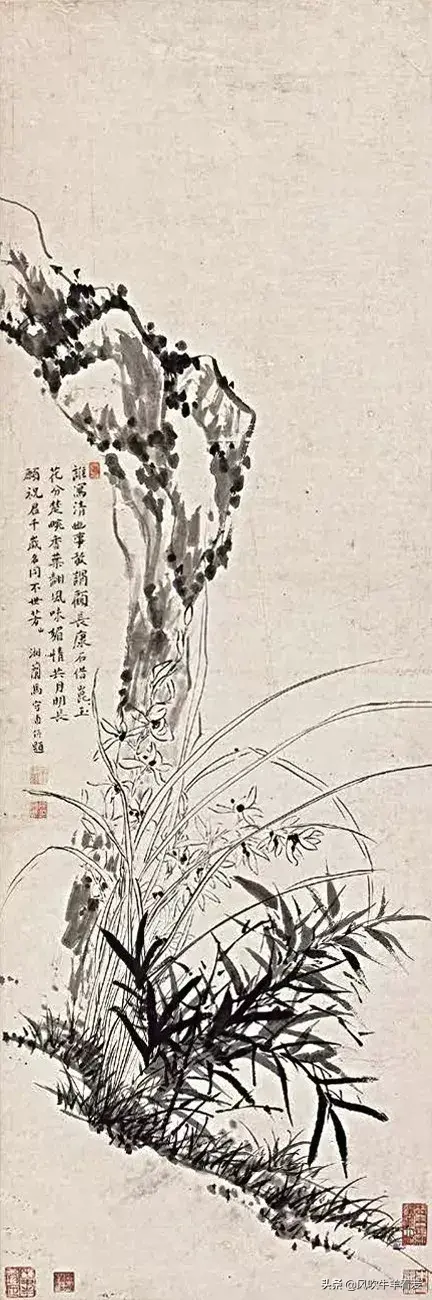 誰寫清幽事敢謂顧長康石借崑玉
花分楚畹香葉翻風味媚情共月明長
願祝君千歲名同不世芳 湘蘭馬守題
头条 @风吹牛羊